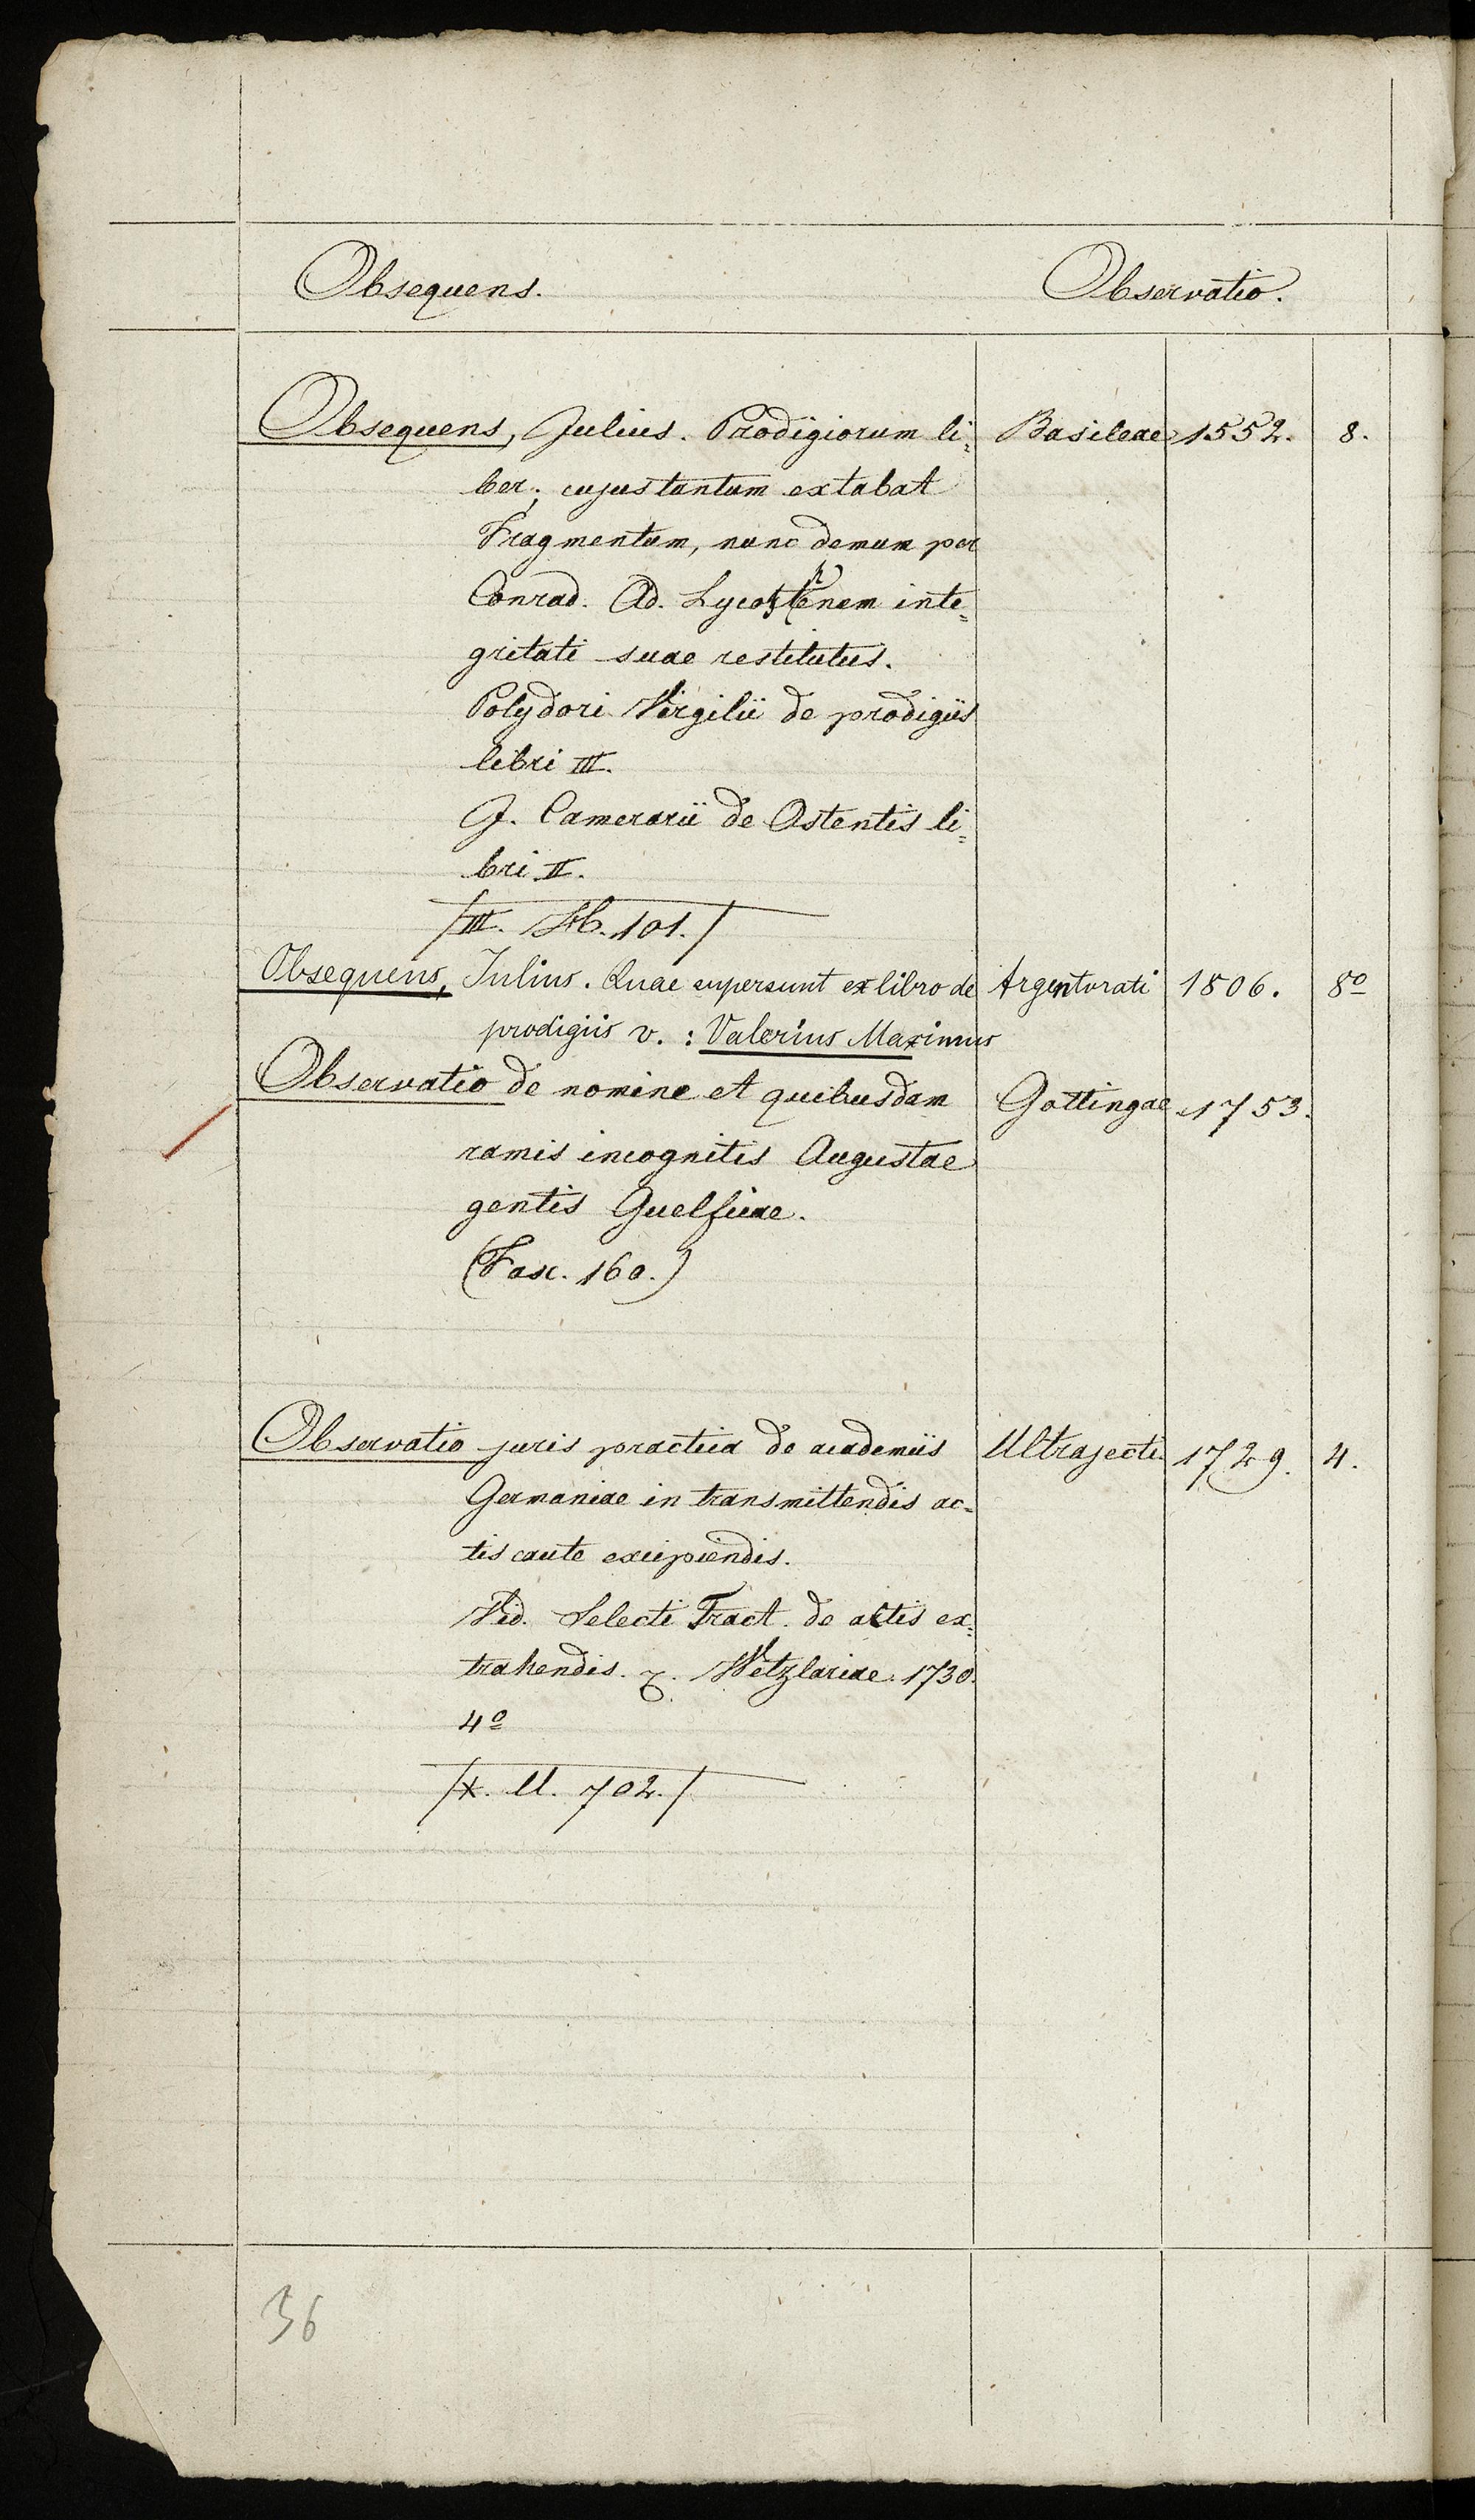 Obsequens. Observatio.
Obsequens, Julius. Prodigiorum li= Basileae 1552. 8.
ber; cujus tantum extabat
Fragmentum, nunc demum per
Conrad. Ad. Lycosthenem inte=
gritati suae restitutus.
Polydori Virgilii de prodigiis
libri III.
J. Camerarii de Ostentis li=
bri II.
/III. H. 101./
Obsequens, Julius. Quae supersunt ex libro de Argentorati 1806. 8º
prodigiis v.: Valerius Maximus
Observatio de nomine et quibusdam Gottingae 1753.
ramis incognitis Augustae
gentis Guelficae.
(Fasc. 160.)
Observatio juris practica de academiis Ultrajecti 1729. 4.
Germaniae in transmittendis ac=
tis caute excipiendis.
Vid. Selecti Tract. de actis ex=
trahendis. Wetzlariae. 1730.
4º
/X. U. 702./
36